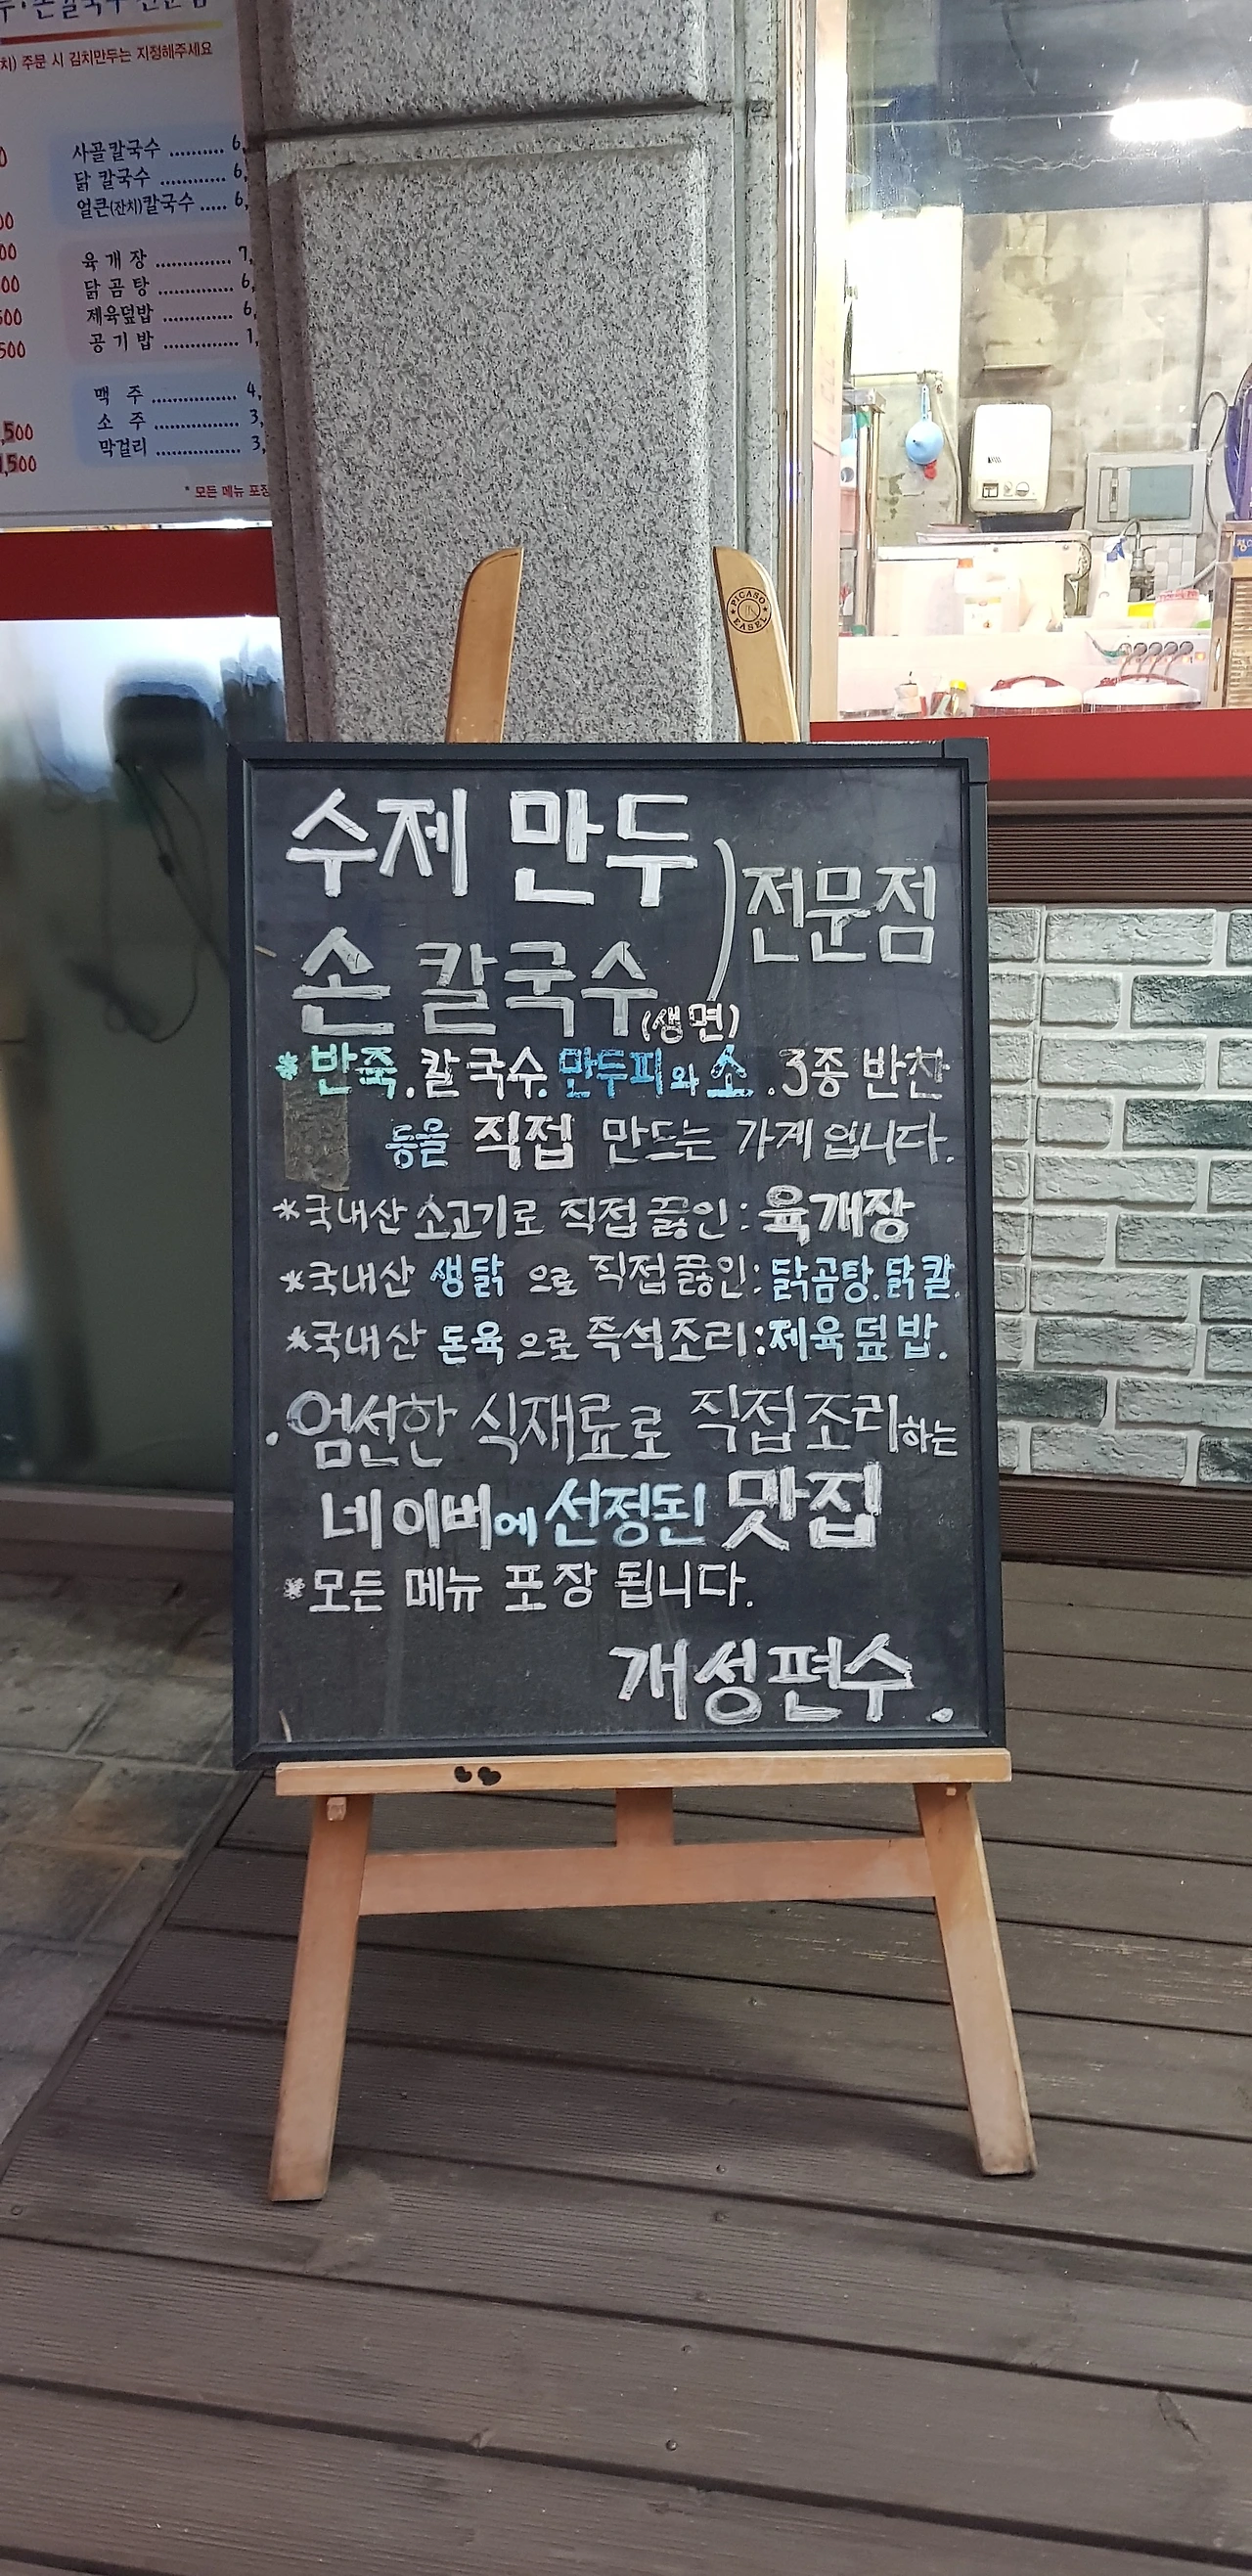 치) 주문 시 김치만두는 지정해주세요
사골칼국수 .......... 6,
닭 칼국수 ............ 6,
얼큰(잔치)칼국수 ..... 6,
육 개 장 .............. 7,
닭 곰 탕 .............. 6,
제육덮밥 ............. 6,
공 기 밥 .............. 1,
맥 주 ................. 4,
소 주 ................. 3,
막걸리 ................ 3,
* 모든 메뉴 포장
00
00
00
500
500
,500
1,500
PICASO EASEL
수제 만두
손 칼국수 (생면) ) 전문점
*반죽.칼국수.만두피와 소.3종 반찬
등을 직접 만드는 가게 입니다.
*국내산 소고기로 직접 끓인: 육개장
*국내산 생닭 으로 직접 끓인: 닭곰탕.닭칼.
*국내산 돈육 으로 즉석조리:제육덮밥.
.엄선한 식재료로 직접조리하는
네이버에 선정된 맛집
*모든 메뉴 포장 됩니다.
개성편수.